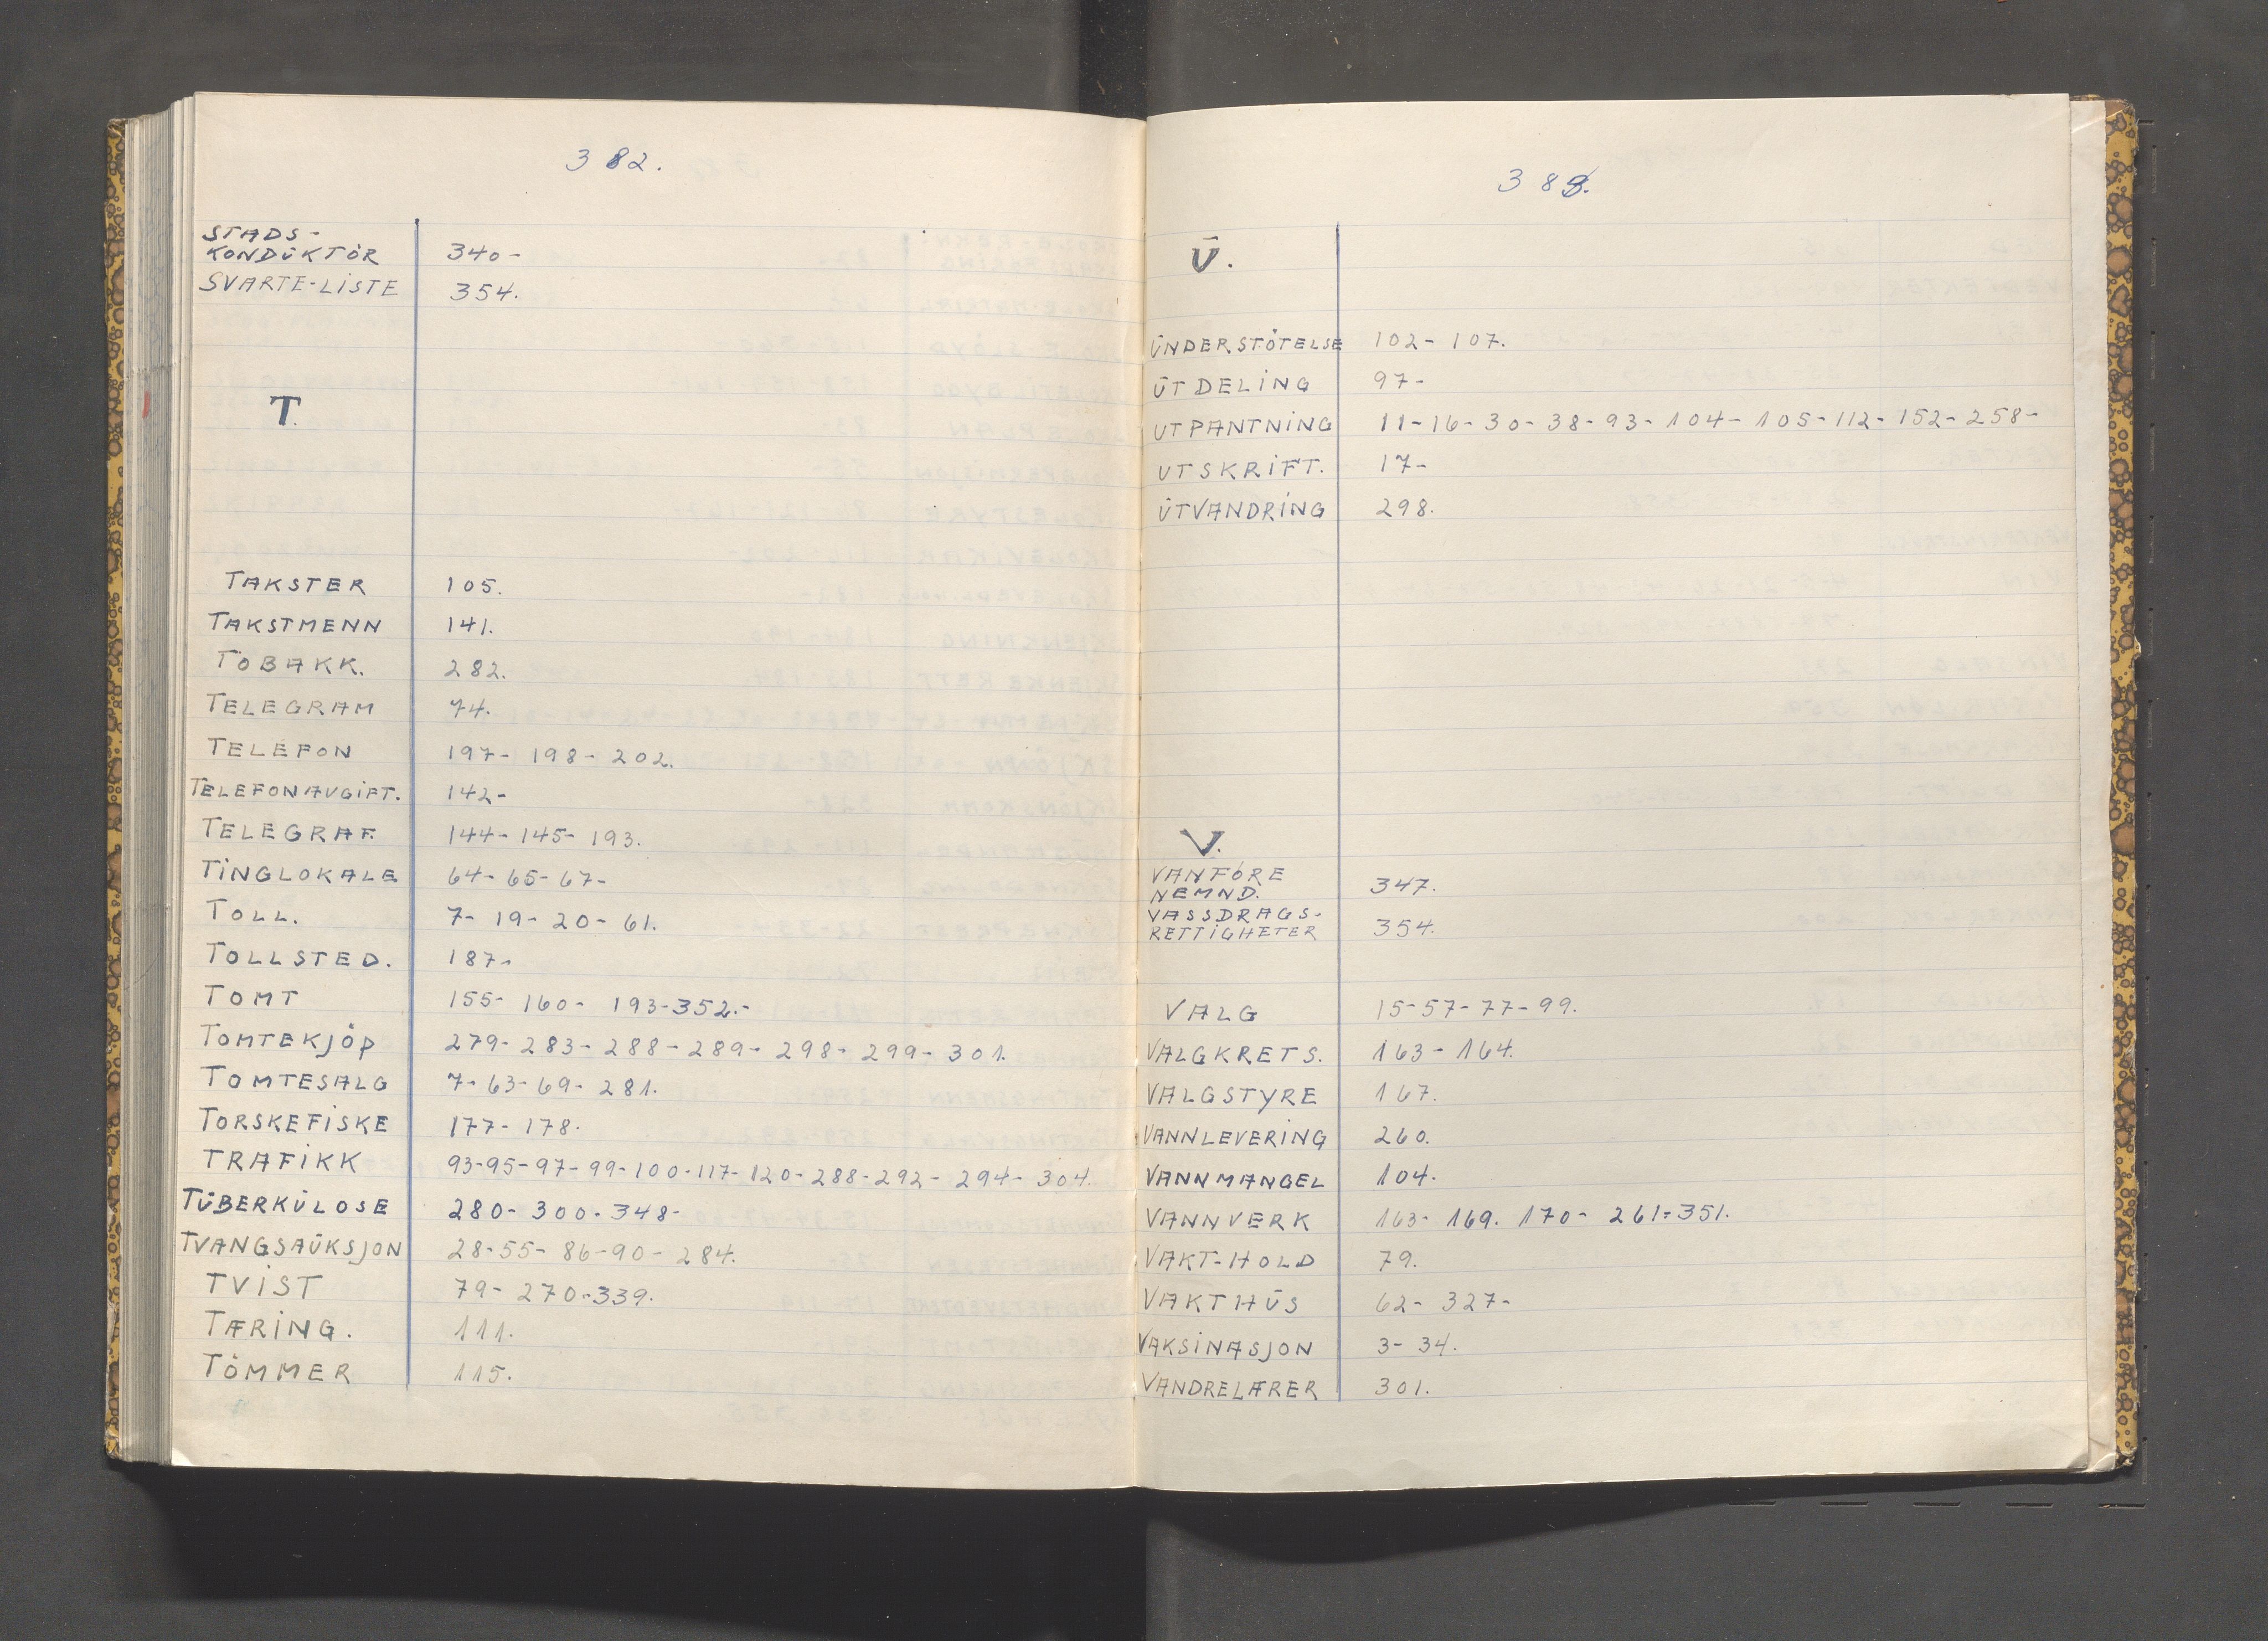 382.
STADS-
KONDŪKTÖR 340-
SVARTE-LISTE 354.
T.
TAKSTER 105.
TAKSTMENN 141.
TOBAKK. 282.
TELEGRAM 74.
TELEFON 197- 198- 202.
TELEFONAVGIFT. 142-
TELEGRAF. 144- 145- 193.
TINGLOKALE 64- 65- 67-
TOLL. 7- 19- 20- 61.
TOLLSTED. 187-
TOMT 155- 160- 193-352.-
TOMTEKJÖP 279- 283- 288- 289- 298- 299- 301.
TOMTESALG 7- 63- 69- 281.
TORSKEFISKE 177- 178.
TRAFIKK 93-95-97-99-100-117-120-288-292- 294- 304.
TŪBERKŪLOSE 280- 300- 348-
TVANGSAŪKSJON 28-55- 86-90- 284.
TVIST 79- 270-339.
TÆRING. 111.
TÖMMER 115.
383.
Ū.
ŪNDERSTÖTELSE 102- 107.
ŪTDELING 97-
UTPANTNING 11-16-30-38-93-104-105-112-152-258-
UTSKRIFT. 17-
ŪTVANDRING 298.
V.
VANFÖRE
NEMND. 347.
VASSDRAGS-
RETTIGHETER 354.
VALG 15-57-77-99.
VALGKRETS. 163- 164.
VALGSTYRE 167.
VANNLEVERING 260.
VANNMANGEL 104.
VANNVERK 163- 169. 170- 261-351.
VAKT-HOLD 79.
VAKTHŪS 62- 327-
VAKSINASJON 3- 34.
VANDRELÆRER 301.